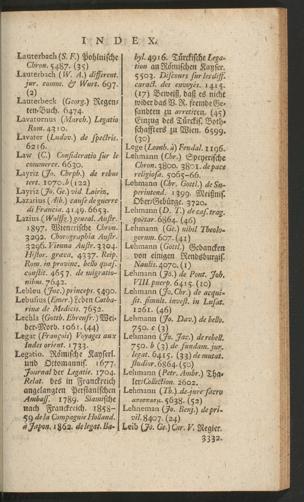 INDEX.
Lauterbach (S. F.) Pohlnische
Chron. 5487. (35)
Lauterbach (W. A.) different.
jur. comm. & Wurt. 697.
(2)
Lauterbeck (Georg.) Regen-
ten-Buch. 6474.
Lavatornus (March.) Legatio
Rom. 4310.
Lavater (Ludov.) de spectris.
6216.
Law (C.) Consideratio sur le
commerce. 6630.
Layriz (Jo. Chrph.) de rebus
vert. 1070. b (122)
Layriz (Jo. Ge.) vid. Lairiz.
Lazarius (Alb.) cause de guerre
di Francia. 4149. 6653.
Lazius (Wolfg.) geneal. Austr.
1897. Wienerische Chron.
3292. Chorographia Austr.
3296. Vienna Austr. 3304.
Histor. graeca, 4337. Reip.
Rom. in provinc. bello quaes.
constit. 4657. de migratio-
nibus. 7642.
Lebleu (Jac.) princeps. 5490.
Lebusius (Emer.) Leben Catha-
rina de Medicis. 7652.
Lechla (Gottb. Ehrenfr.) Wei-
ber-Mord. 1061. (44)
Legat (François) Voyages aux
Indes orient. 1733.
Legatio. Römische Kayserl.
und Ottomannis. 1677.
Journal der Legatie. 1704.
Relat. des in Franckreich
angelangten Persianischen
Ambass. 1789. Siamische
nach Franckreich. 1858-
59 de la Compagnie Holland.
à Japon. 1862. de legat. Ba-
byl. 4916. Türckische Lega-
tion an Römischen Kayser.
5503. Discours sur les diff.
caract. des envoyez. 1415.
(17) Beweiß, daß es nicht
wider das V. R. fremde Ge-
sandten zu arretiren. (45)
Einzug des Türckis. Both-
schaffters zu Wien. 6599.
(30)
Lege (Leonh. à) Feudal. 1196.
Lehmann (Chr.) Speyerische
Chron. 3800. 3801. de pace
religiosa. 5065-66.
Lehmann (Chr. Gottl.) de Su-
perintend. 1399. Meißnis.
Ober/Gebürge. 3720.
Lehmann (D. T.) de cas. trag.
poetar. 6864. (46)
Lehmann (Ge.) nibil Theolo-
gorum. 607. (41)
Lehmann (Gottl.) Gedancken
von einigen Rendsburgis.
Nauliis. 4070. (1)
Lehmann (Jo.) de Pont. Joh.
VIII. puerp. 6415. (10)
Lehmann (Jo. Chr.) de acqui-
sit. simult. invest. in Lusat.
1261. (46)
Lehmann (Jo. Dav.) de bello.
750. c (3)
Lehmann (Jo. Jac.) de rebell.
750. b (3) de fundam. jur.
legat. 6415. (33) de mutat.
studior. 6864. (50)
Lehmann (Petr. Ambr.) Tha-
ler/Collection. 2602.
Lehmann (Th.) de jure sacro
5638. (52)
Lehneman (Jo. Benj.) de pri-
vil. 8407. (24)
Leib (Jo. Ge.) Cur. V. Regier.
3332.